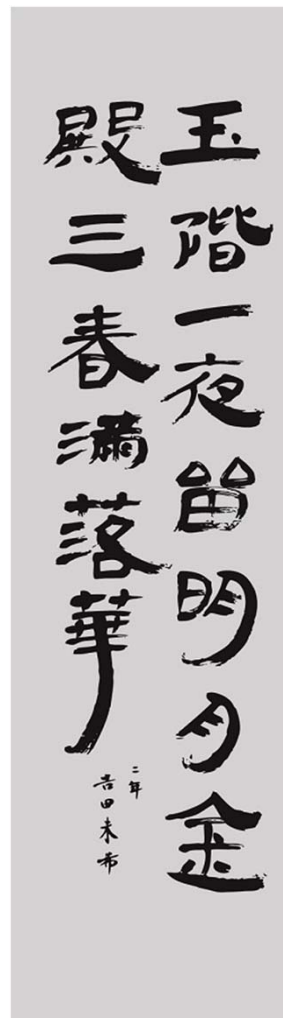 玉階一夜留明月金
殿三春満落華
二年
吉田未希